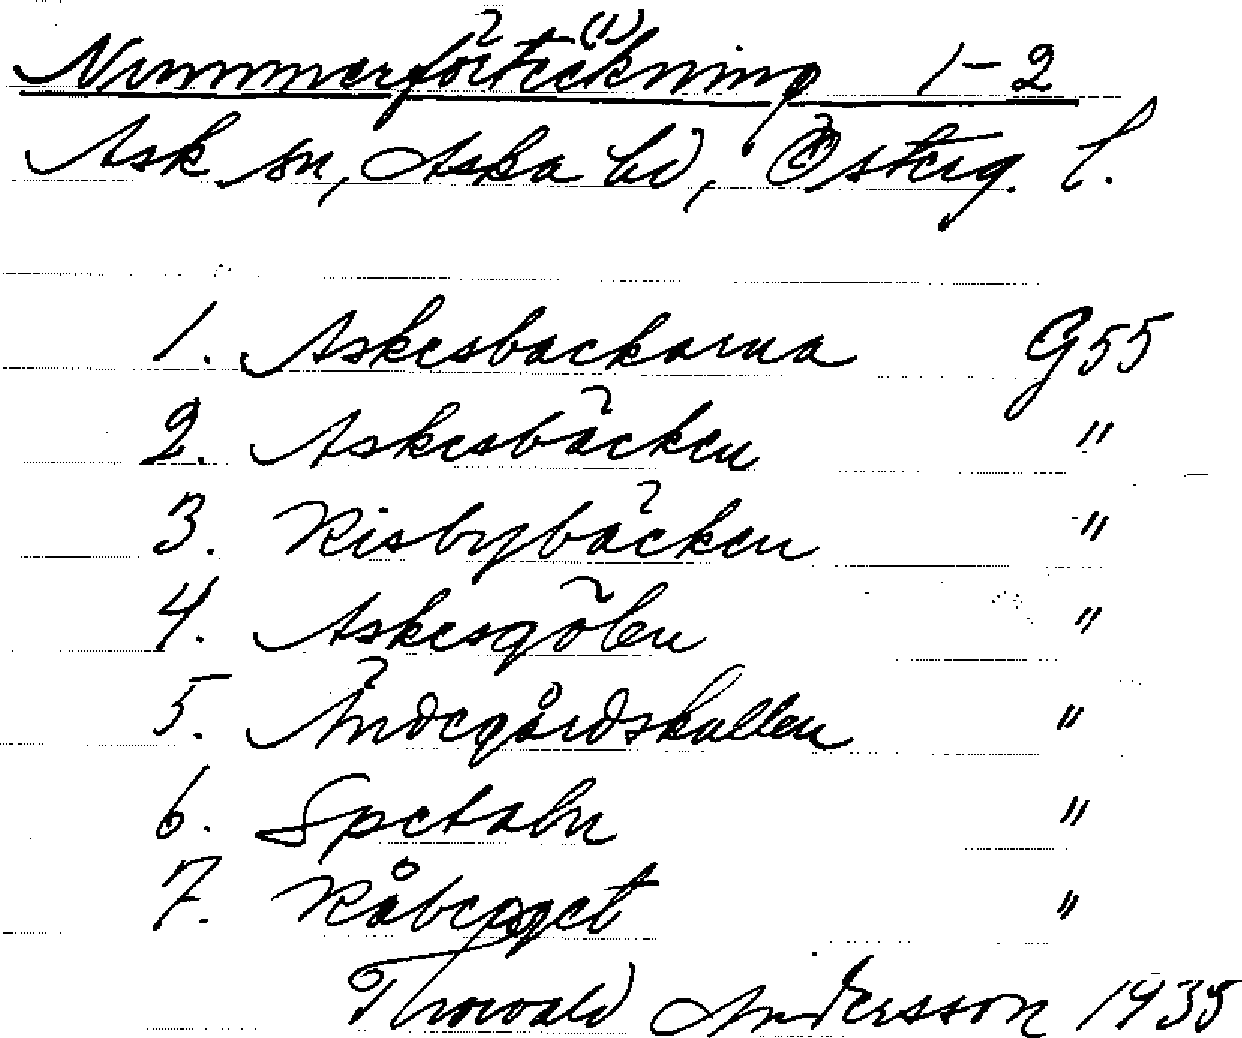 Nummerförteckning (1) 1-2
Ask sn, Aska hd, Österg. l.
1. Askesbackarna G55
2. Askesbäcken "
3. Risbybäcken "
4. Askesgölen "
5. Ändegårdskullen "
6. Spetaln "
7. Råberget "
Thorvald Andersson 1935